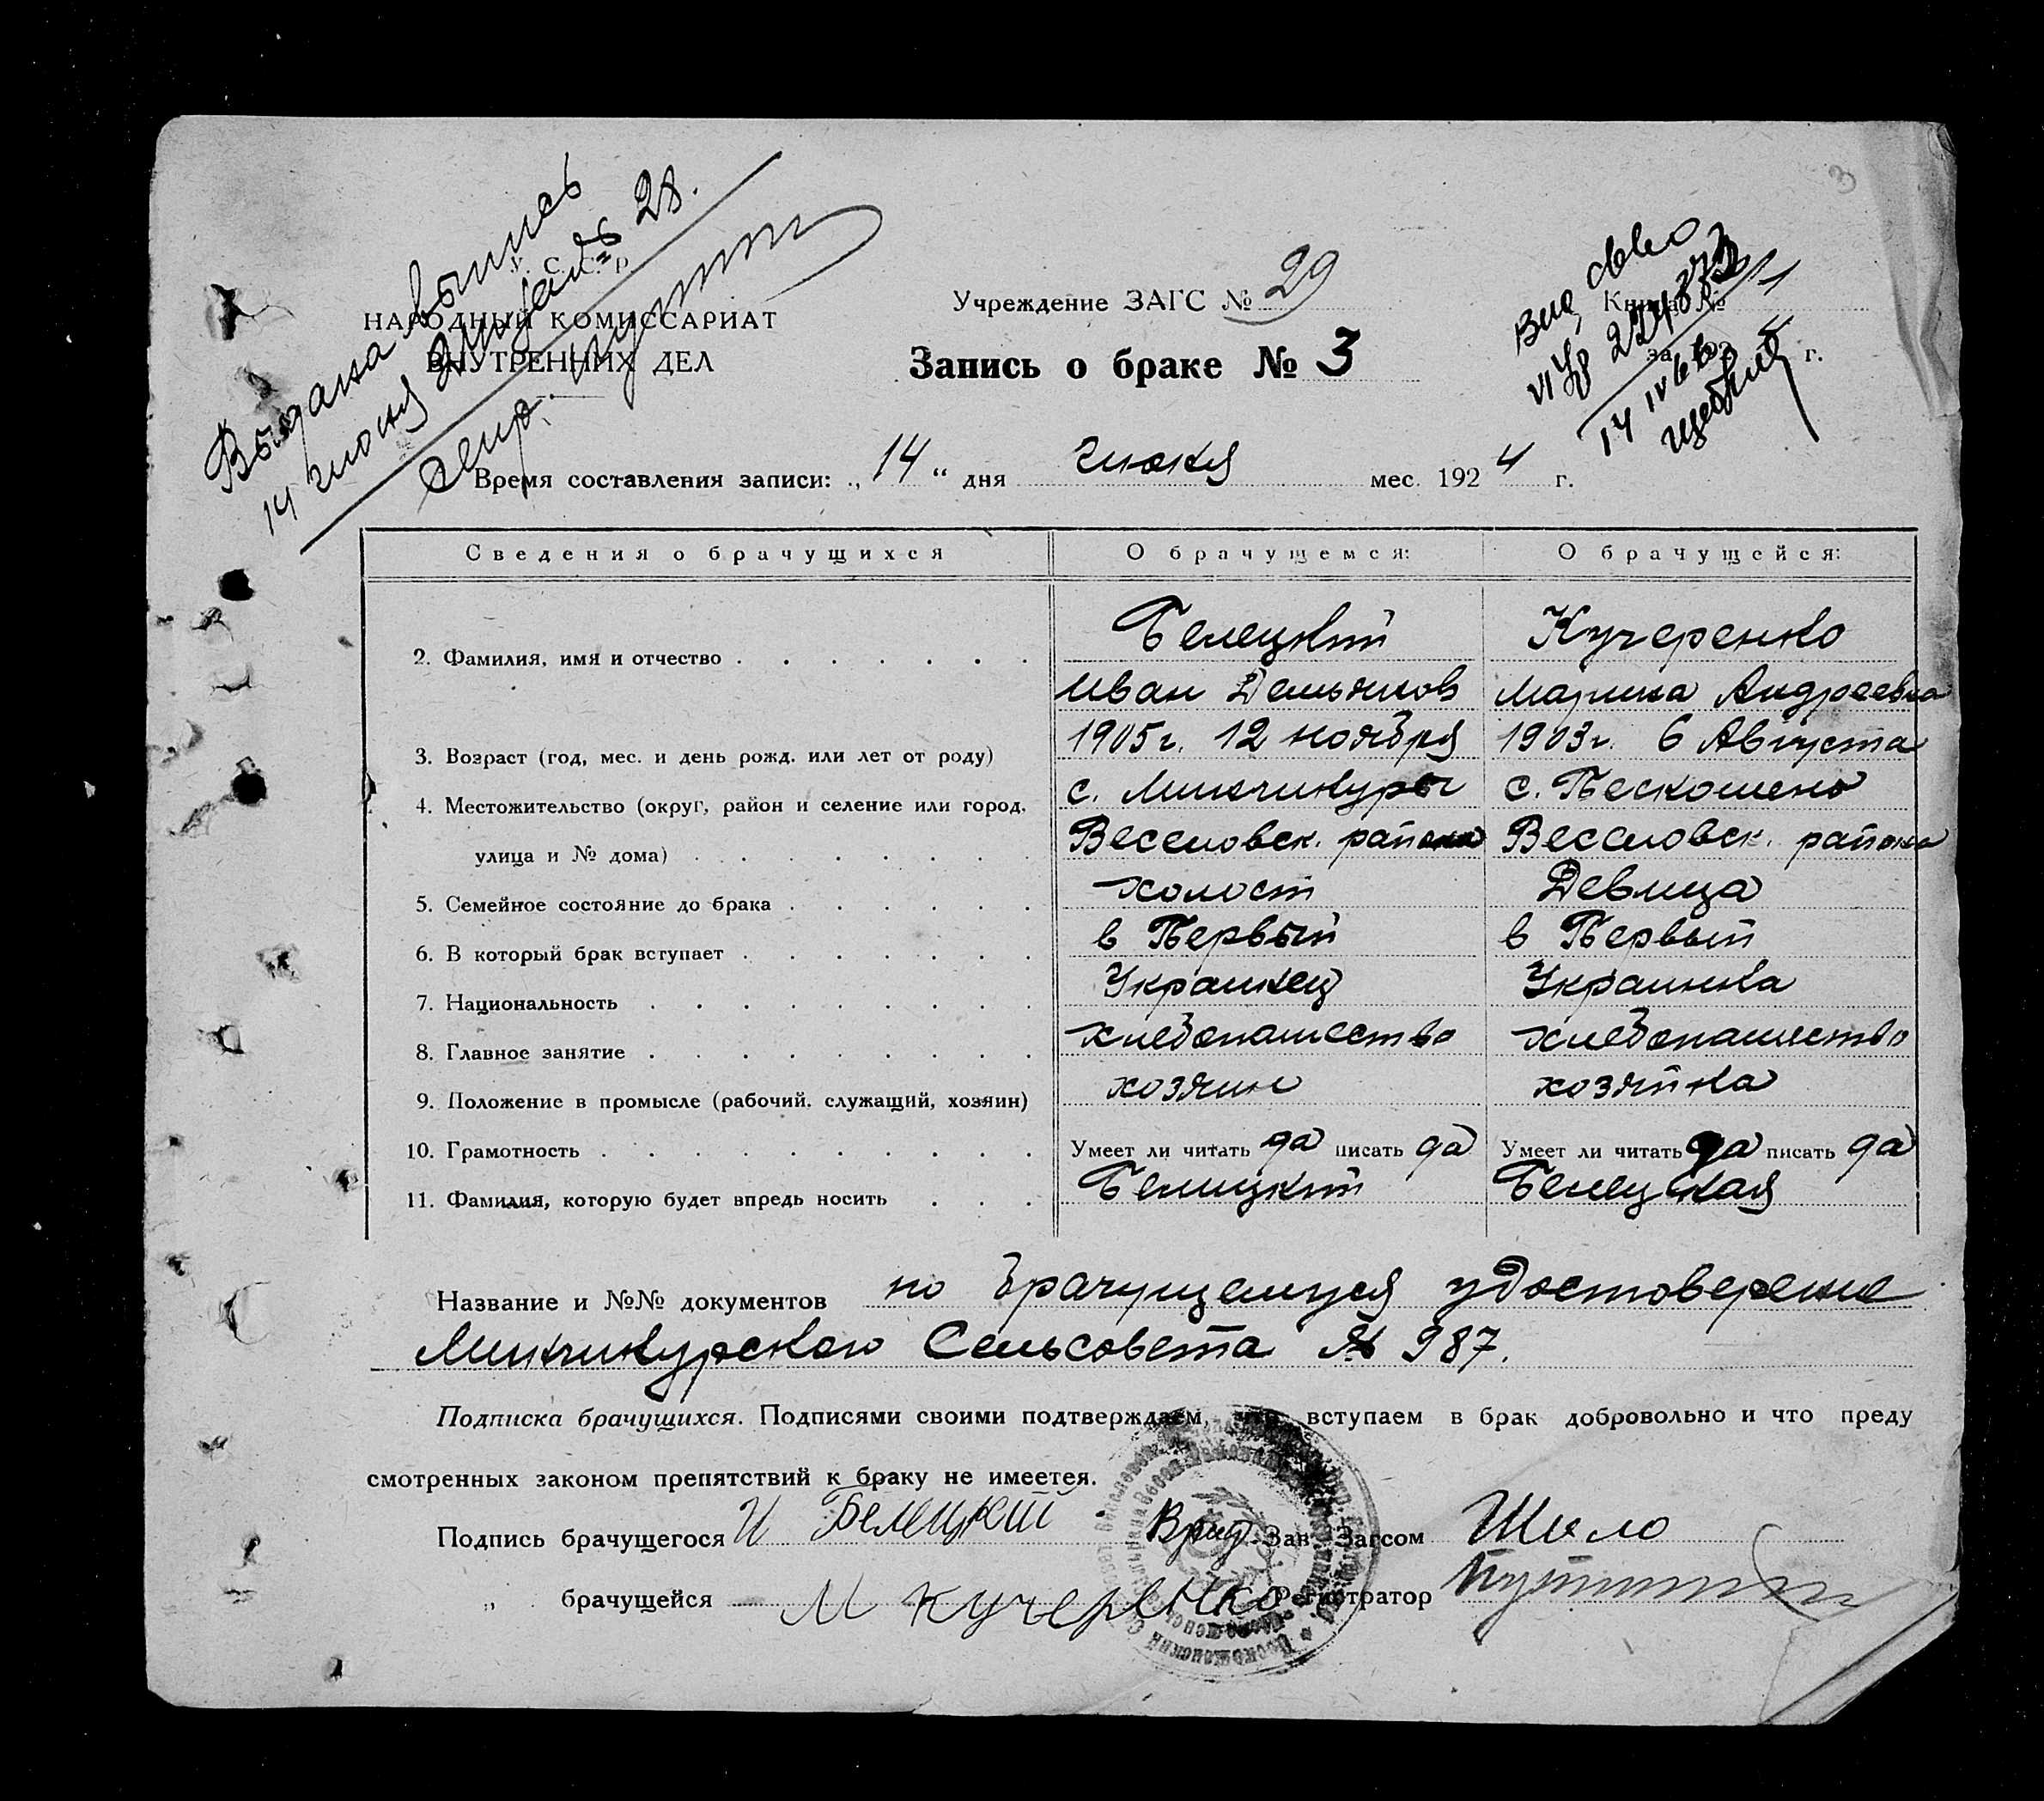 Выдана выпись
14 июня 28.
У. С. С. Р.
НАРОДНЫЙ КОМИССАРИАТ
ВНУТРЕННИХ ДЕЛ
Учреждение ЗАГС № 29
Запись о браке № 3
Книга №
за 192 г.
Время составления записи: „ 14 “ дня июня мес. 1924 г.
Сведения о брачущихся О брачущемся: О брачущейся:
2. Фамилия, имя и отчество Белецкий Кучеренко
Иван Демьянов Марина Андреевна
3. Возраст (год, мес. и день рожд. или лет от роду) 1905 г. 12 ноября 1903 г. 6 Августа
4. Местожительство (округ, район и селение или город, с. Минчикуры с. Пескошено
улица и № дома) Веселовск. района Веселовск. района
5. Семейное состояние до брака холост Девица
6. В который брак вступает в Первый в Первый
7. Национальность Украинец Украинка
8. Главное занятие хлебопашество хлебопашество
9. Положение в промысле (рабочий, служащий, хозяин) хозяин хозяйка
10. Грамотность Умеет ли читать да писать да Умеет ли читать да писать да
11. Фамилия, которую будет впредь носить Белицкий Белецкая
Название и №№ документов по брачущемуся удостоверение
Минчикурского Сельсовета № 987.
Подписка брачущихся. Подписями своими подтверждаем, что вступаем в брак добровольно и что преду
смотренных законом препятствий к браку не имеется.
Подпись брачущегося И Белецкий Врид Зав. Загсом Шило
„ брачущейся М Кучеренко Регистратор